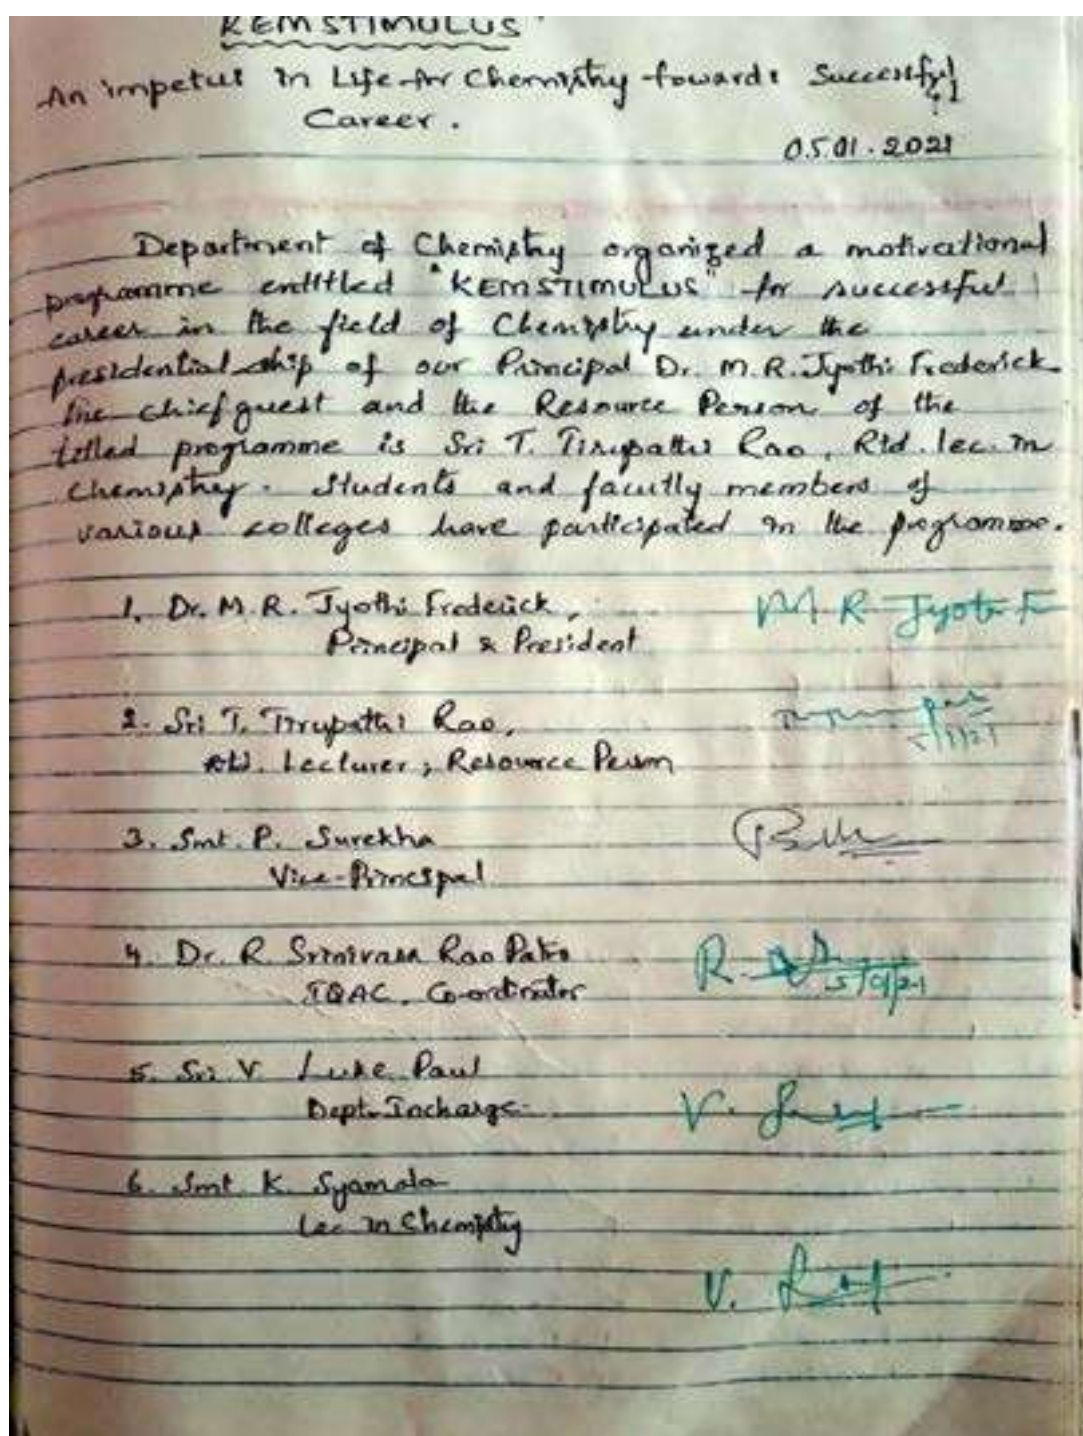 KEMSTIMULUS
An impetus in Life for Chemistry towards Successful
Career.
05.01.2021
Department of Chemistry organized a motivational
programme entitled "KEMSTIMULUS" for successful
career in the field of Chemistry under the
presidential ship of our Principal Dr. M.R. Jyothi Frederick
The chief guest and the Resource Person of the
titled programme is Sri T. Tirupathi Rao, Rtd. lec. in
Chemistry. Students and faculty members of
various colleges have participated in the programme.
1. Dr. M. R. Jyothi Frederick,
M R Jyoti F
Principal & President
2. Sri T. Tirupathi Rao,
5/1/21
Rtd. Lecturer; Resource Person
3. Smt. P. Surekha
Vice-Principal
4. Dr. R. Srinivasa Rao Patro
R.
IQAC, Co-ordinator
5/01/21
5. Sri V. Luke Paul
Dept. Incharge
V.
6. Smt K. Syamala
Lec in Chemistry
V.